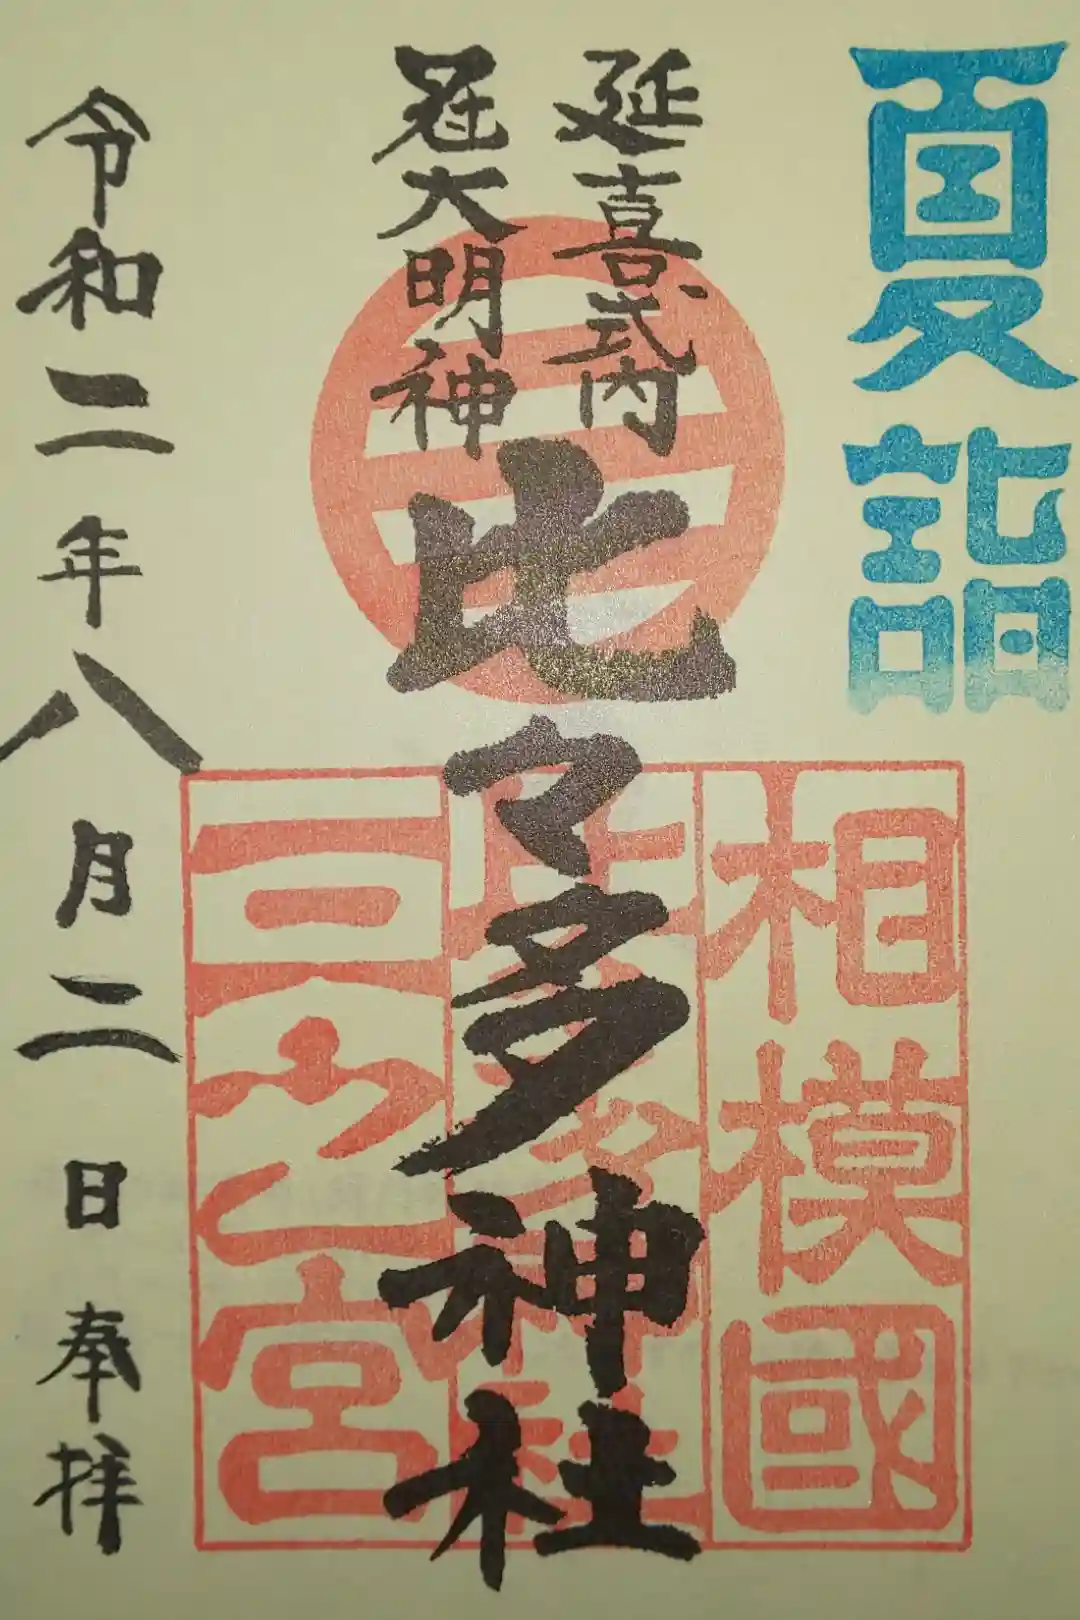 夏詣
延喜式内
冠大明神
比々多神社
相模國
比々多神社
三之宮
令和二年八月二日奉拝